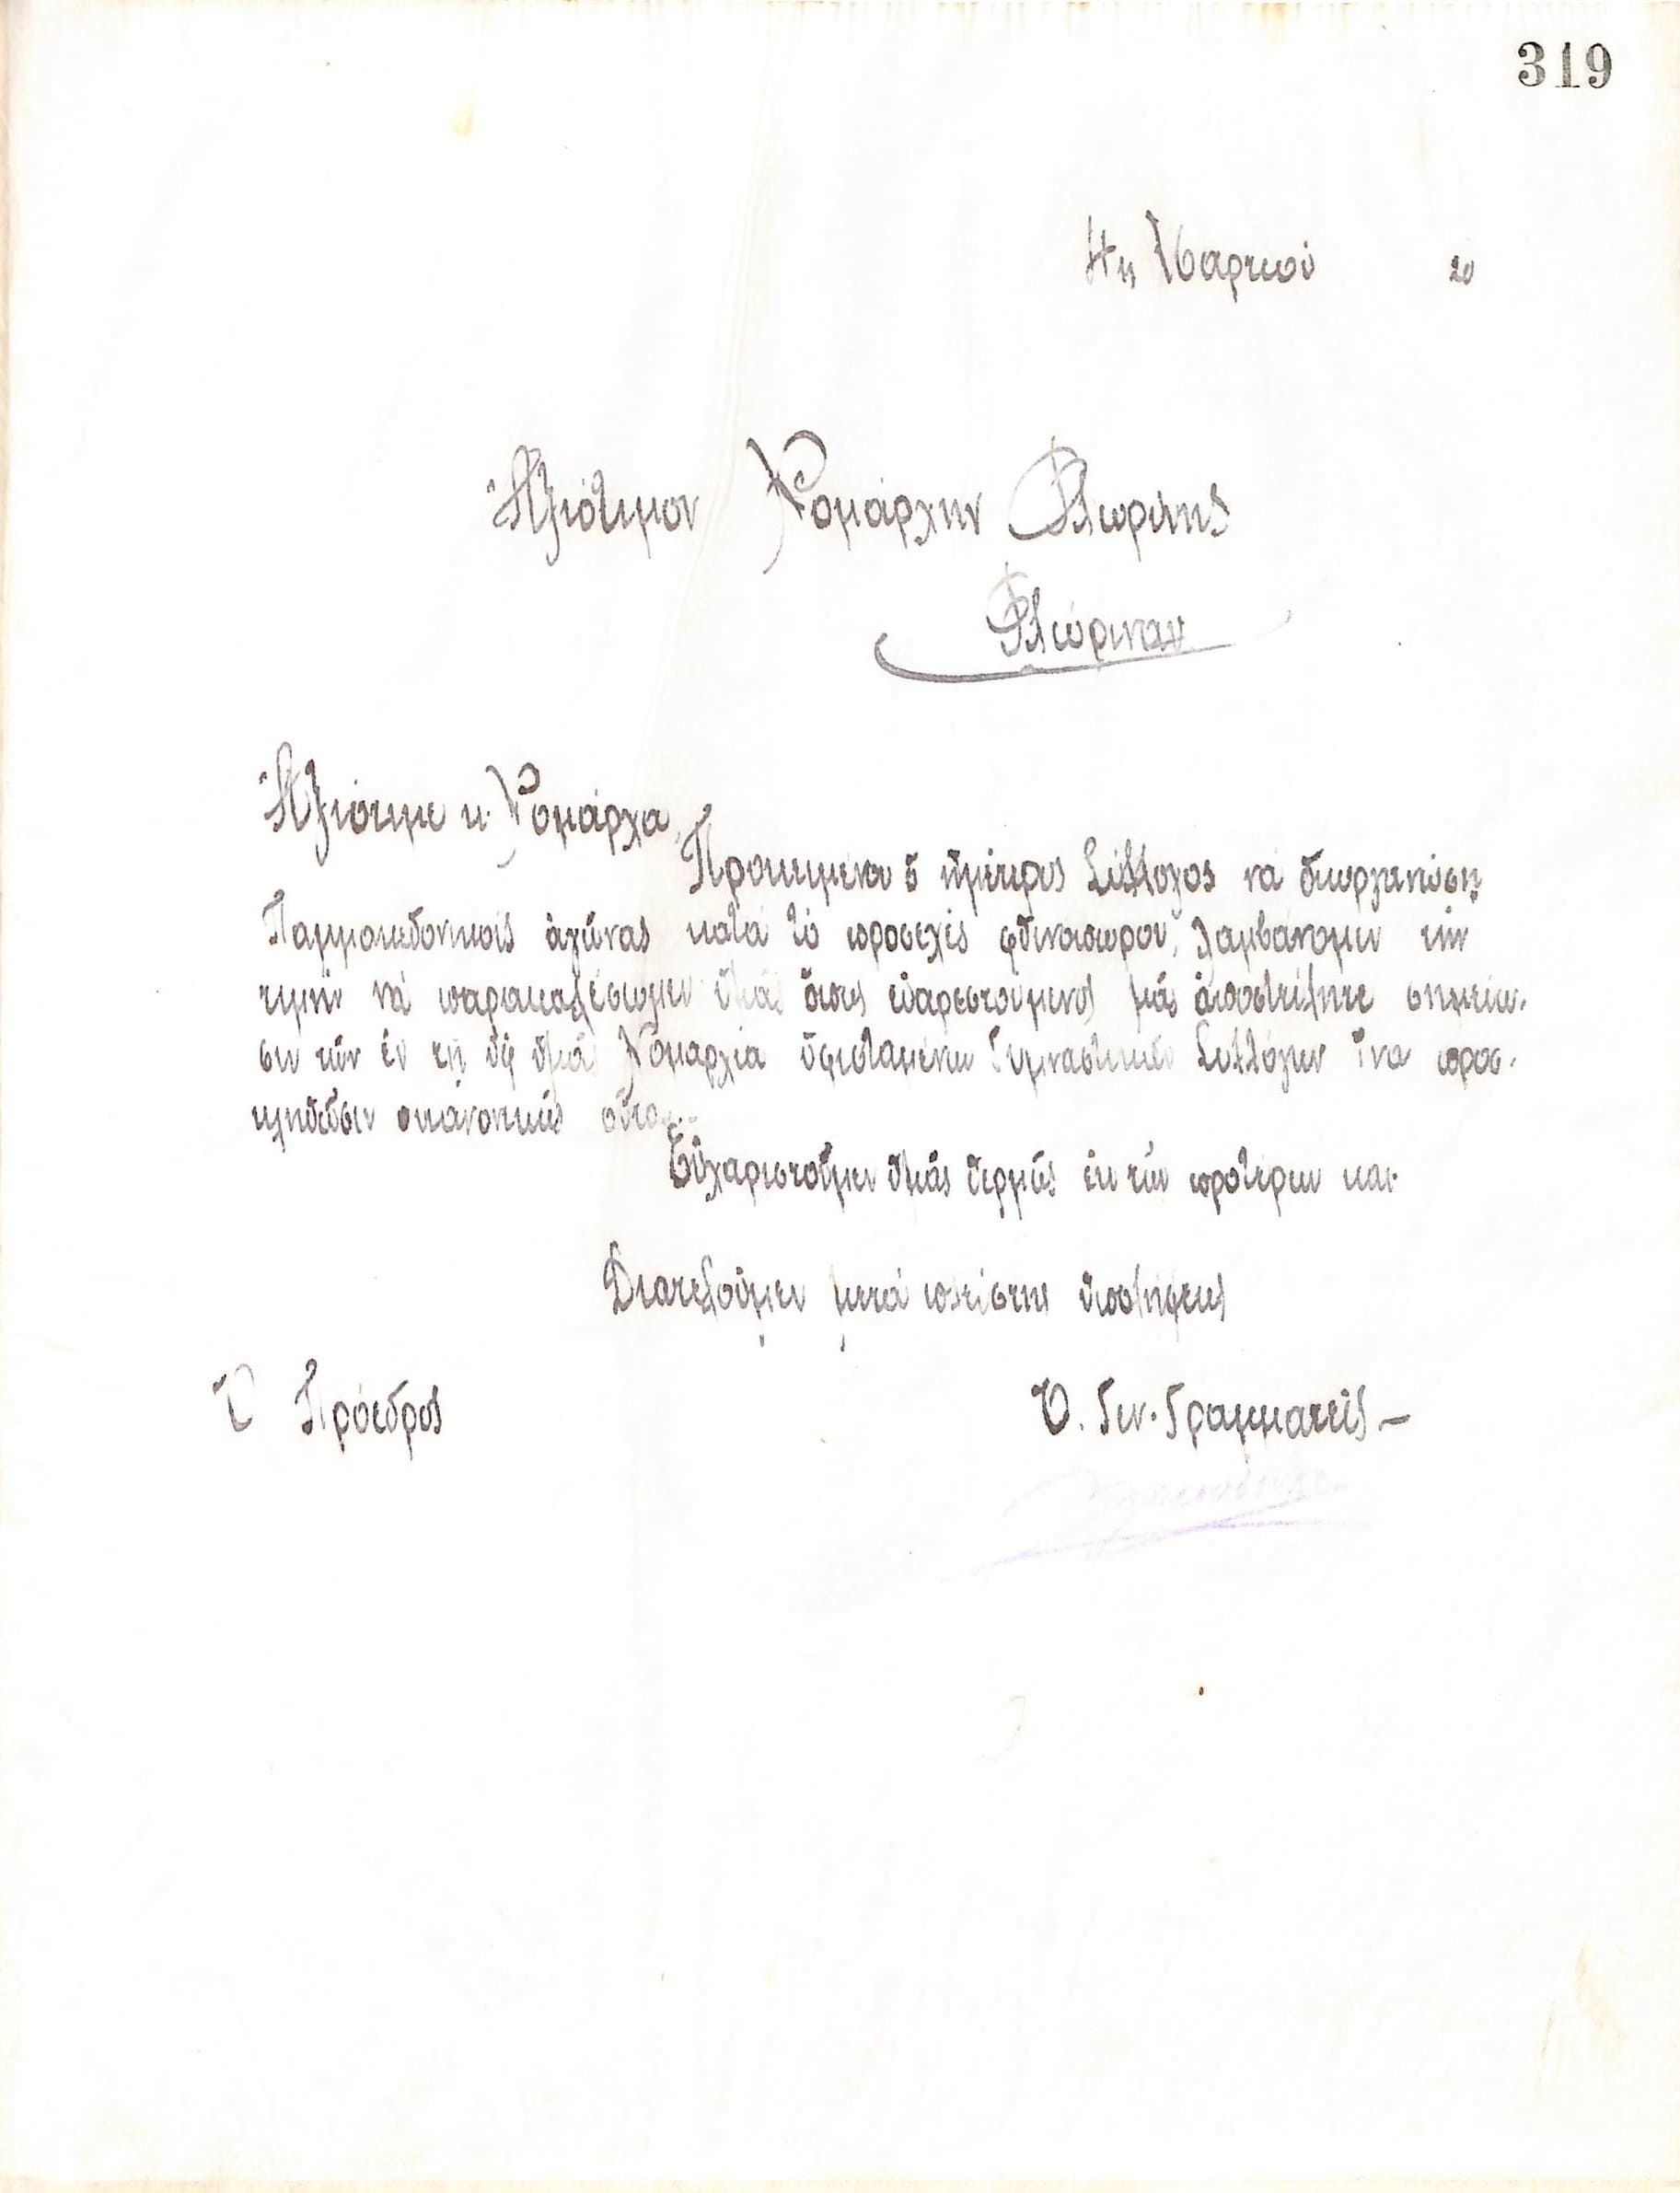 319
4ῃ Μαρτίου 20
Ἀξιότιμον Νομάρχην Φλωρίνης
Φλώριναν
Ἀξιότιμε κ. Νομάρχα,
Προκειμένου ὁ ἡμέτερος Σύλλογος νά διοργανώσῃ
Παμμακεδονικούς ἀγῶνας κατά τό προσεχές φθινόπωρον, λαμβάνομεν τήν
τιμήν νά παρακαλέσωμεν ὑμᾶς ὅπως εὐαρεστούμενος μᾶς ἀποστείλητε σημείω-
σιν τῶν ἐν τῇ ὑφ' ὑμᾶς Νομαρχίᾳ ὑφισταμένων Γυμναστικῶν Συλλόγων ἵνα προσ-
κληθῶσιν κανονικῶς
Εὐχαριστοῦμεν ὑμᾶς θερμῶς ἐκ τῶν προτέρων και
Διατελοῦμεν μετά πλείστης ὑπολήψεως
Ὁ Πρόεδρος
Ὁ. Γεν. Γραμματεύς –